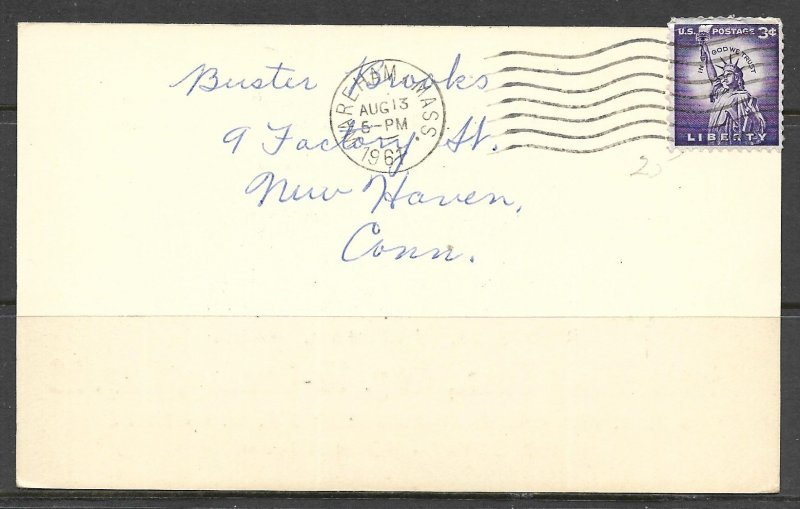 Buster Brooks
9 Factory St.
New Haven,
Conn.
WAREHAM, MASS.
AUG 13
5-PM
1961
U.S. POSTAGE 3¢
IN GOD WE TRUST
LIBERTY